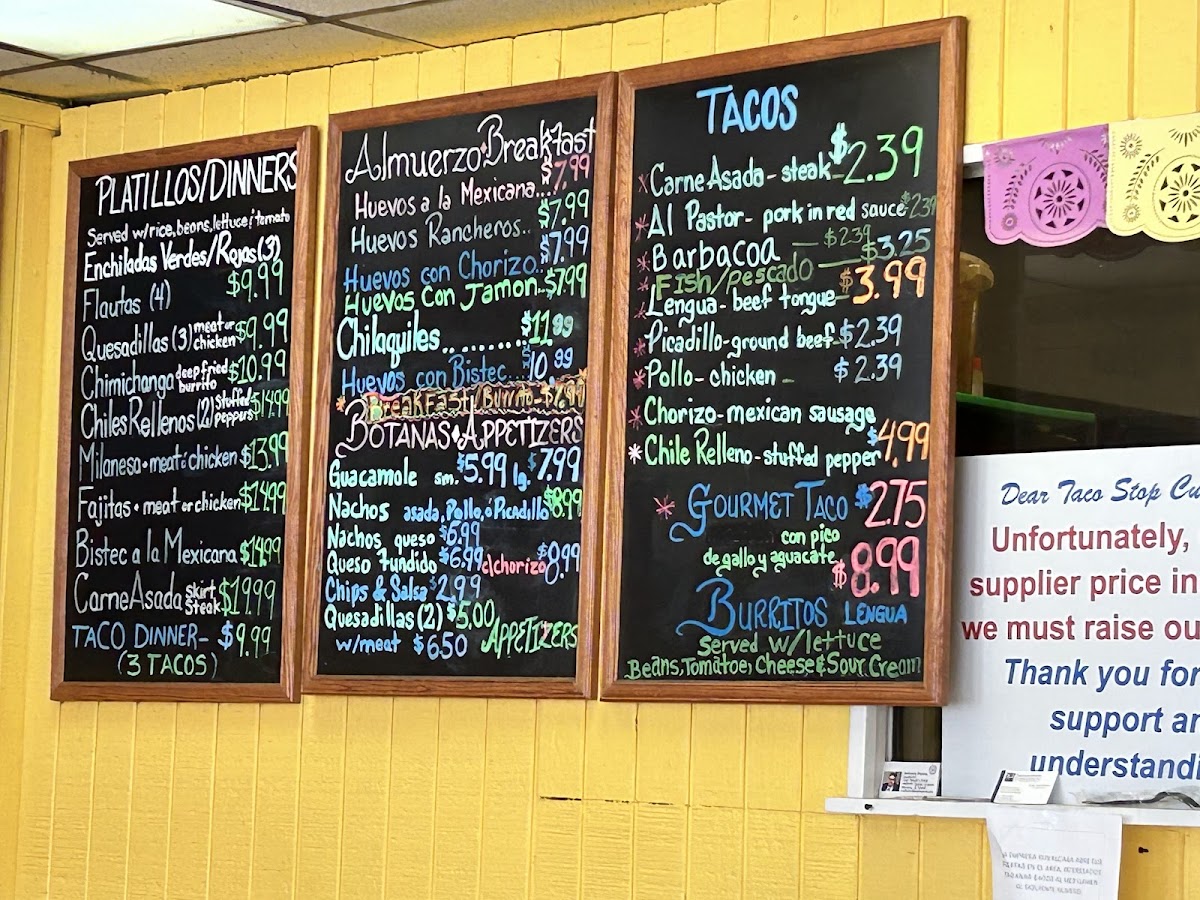 PLATILLOS/DINNERS
Served w/rice, beans, lettuce, tomato
Enchiladas Verdes/Rojas (3)
$9.99
Flautas (4)
Quesadillas (3) meat or chicken $9.99
Chimichanga deep fried burrito $10.99
Chiles Rellenos (2) stuffed peppers $14.99
Milanesa • meat ó chicken $13.99
Fajitas • meat or chicken $14.99
Bistec a la Mexicana $14.99
Carne Asada skirt steak $19.99
TACO DINNER- $9.99
(3 TACOS)
Almuerzo • Breakfast
Huevos a la Mexicana... $7.99
Huevos Rancheros.. $7.99
Huevos con Chorizo.. $7.99
Huevos con Jamon.. $7.99
Chilaquiles......... $11.99
Huevos con Bistec... $10.99
Breakfast/Burrito-$7.99
BOTANAS • APPETIZERS
Guacamole sm. $5.99 lg. $7.99
Nachos asada, Pollo, ó Picadillo $8.99
Nachos queso $6.99
Queso fundido $6.99 c/chorizo $8.99
Chips & Salsa $2.99
Quesadillas (2) $5.00
w/meat $6.50 APPETIZERS
TACOS
Carne Asada - steak - $2.39
Al Pastor - pork in red sauce $2.39
Barbacoa — $2.39
Fish/pescado — $3.25
Lengua - beef tongue - $3.99
Picadillo - ground beef - $2.39
Pollo - chicken - $2.39
Chorizo - mexican sausage
Chile Relleno - stuffed pepper $4.99
GOURMET TACO $2.75
con pico
de gallo y aguacate
$8.99
BURRITOS LENGUA
Served w/lettuce
Beans, Tomatoe, Cheese & Sour Cream
Dear Taco Stop Cu
Unfortunately,
supplier price in
we must raise ou
Thank you for
support an
understandi